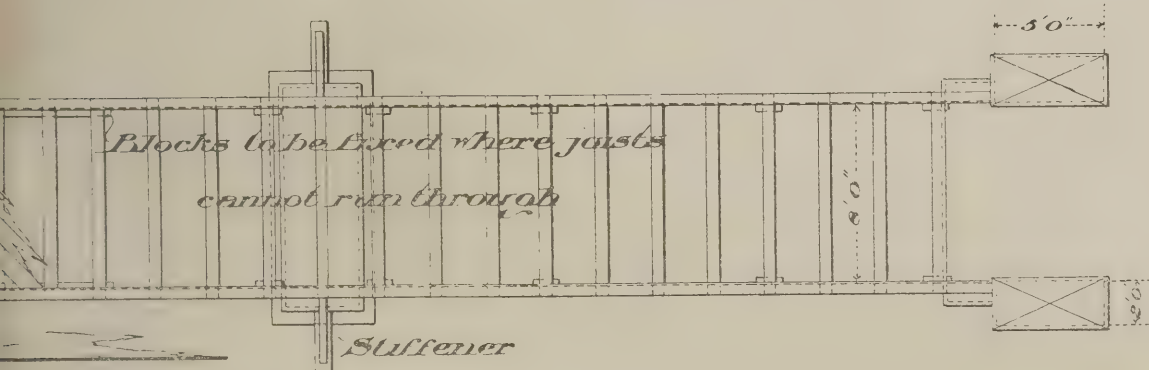 5'0"
Blocks to be fixed where joists
cannot run through
8'0"
2'0"
Stiffener